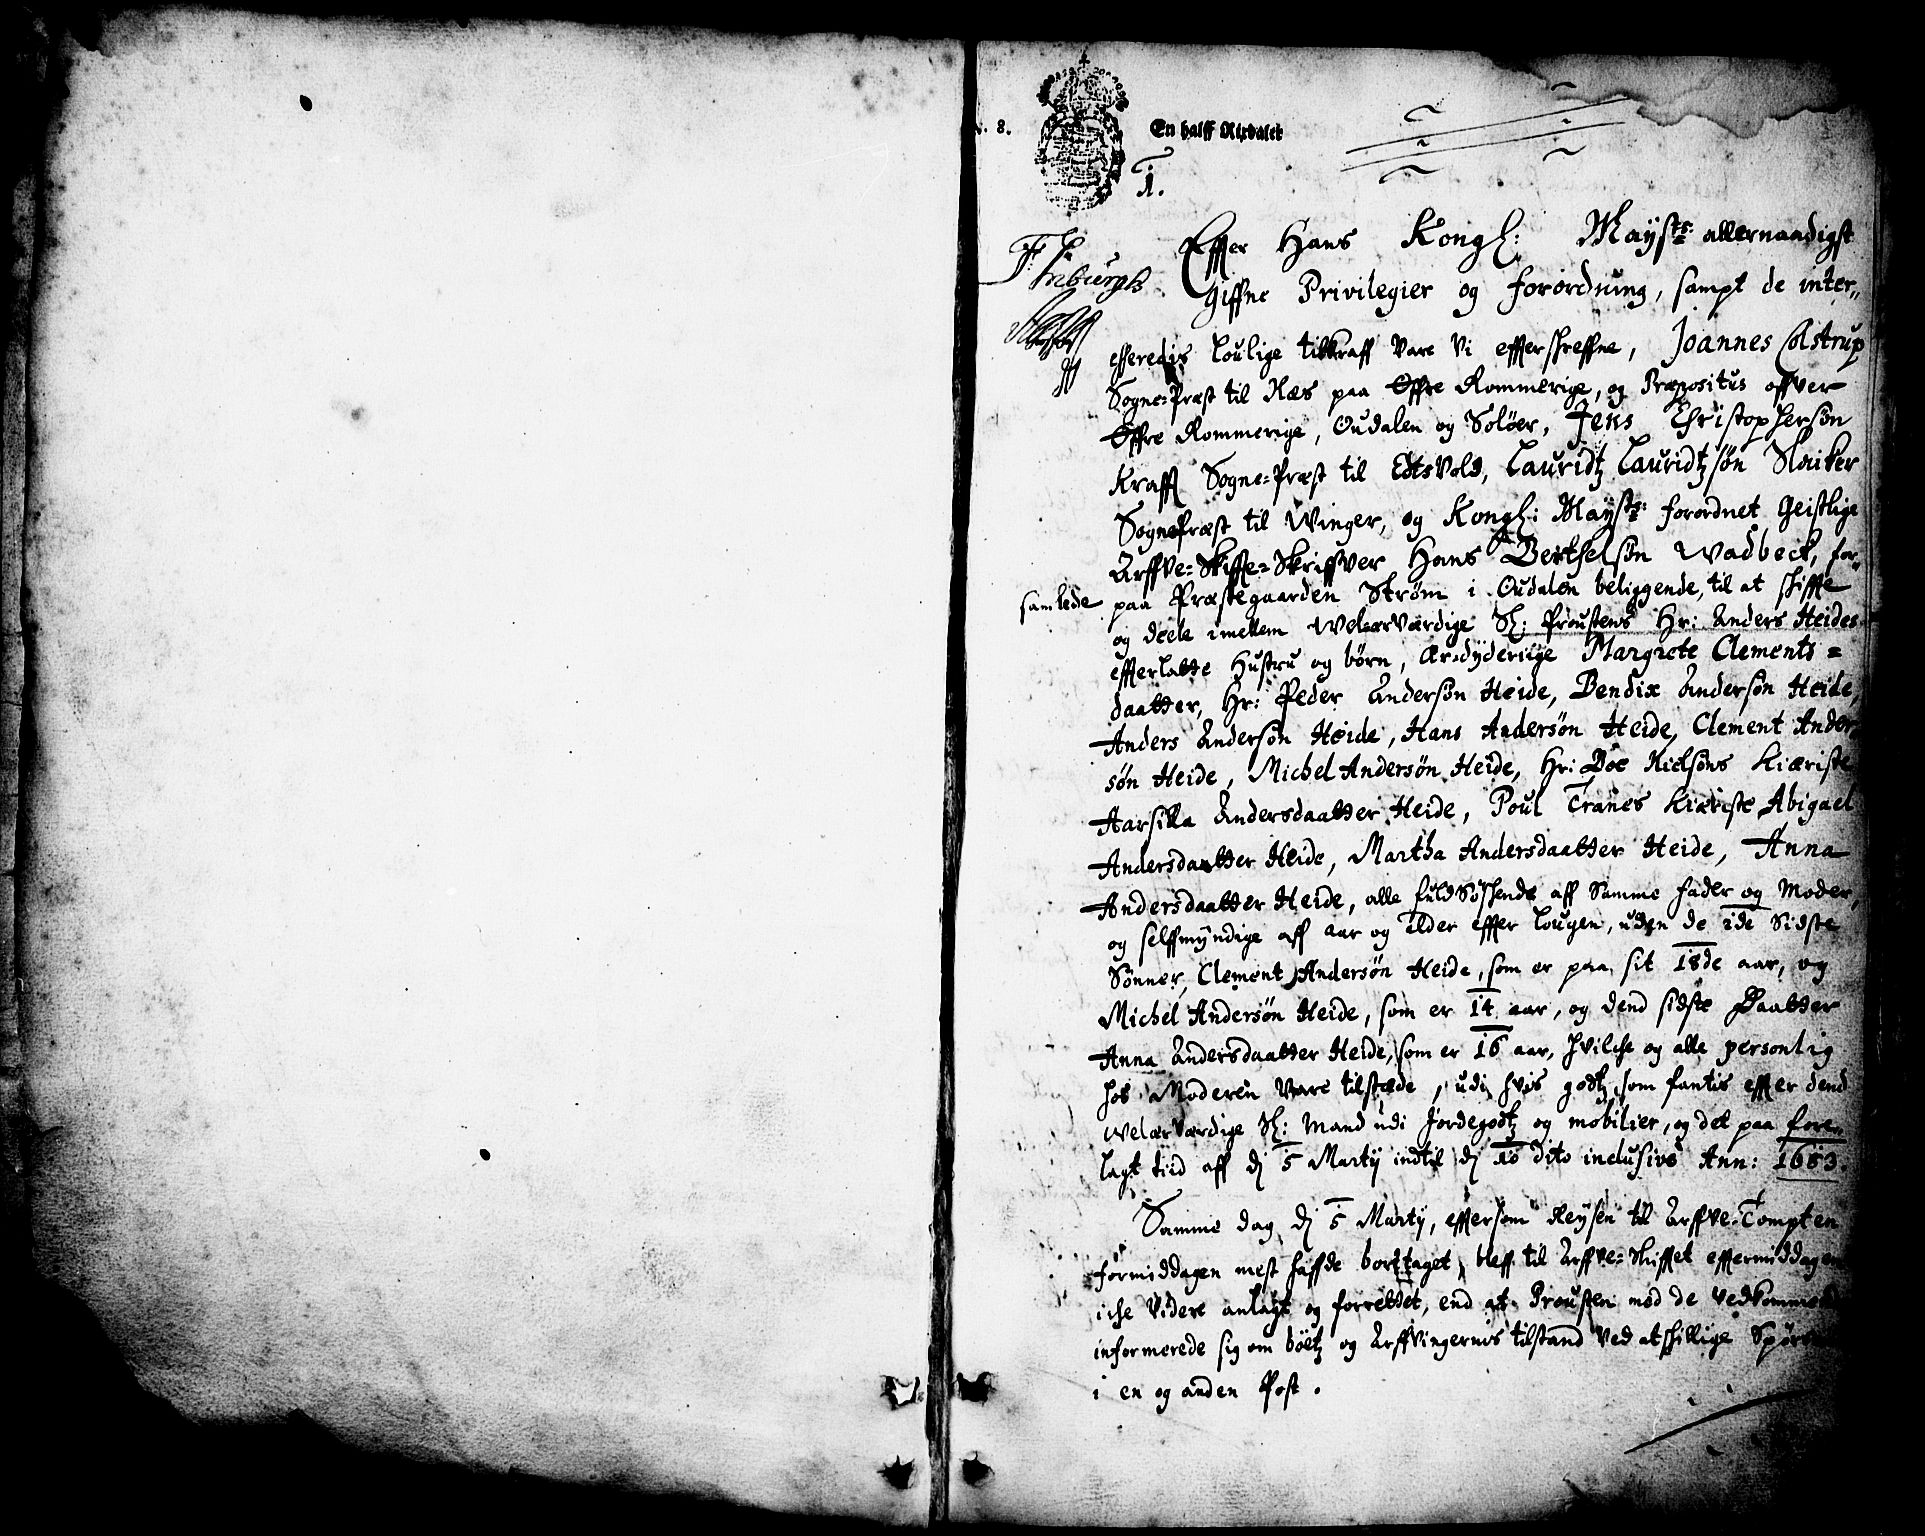 8.
En halff Rixdaler
1.
Effter Hans Kongl: Mayst:s allernaadigst
giffne Privilegier og forordning, sampt de inter„
esseredis lovlige tilkraff vare vi effterskreffne, Joannes Colstrup
Sogne-Præst til Næs paa Øffre Rommerige, og Præpositus offver
Øffre Rommerige, Oudalen og Soløer, Jens Christophersøn
Krafft Sogne-Præst til Edtsvold, Lauridtz Lauridtzsøn
Sognepræst til Winger, og Kongl: Mayst:s forordnet Geistlige
Arffve-Skiffte-Skriffver Hans Berthelsøn Wadbeck, for„
samlede paa Præstegaarden Strøm i Oudalen beliggende, til at skiffte
og deele imellem Welærværdige Sl: Proustens Hr: Anders Heides
effterlatte Hustru og børn, Ærdyderiige Margrete Clements=
daatter, Hr: Peder Andersøn Heide, Bendix Andersøn Heide,
Anders Andersøn Heide, Hans Andersøn Heide, Clement Ander„
søn Heide, Michel Andersøn Heide, Hr: Boe Nielsøns Kiæriste
Aarsilla Andersdaatter Heide, Poul Tranes Kiæriste Abigael
Andersdaatter Heide, Martha Andersdaatter Heide, Anna
Andersdaatter Heide, alle fuldsøskende aff samme fader og moder,
og selffmyndige aff aar og alder effter Lougen, uden de 2de sidste
Sønner, Clement Andersøn Heide, som er paa sit 18de aar, og
Michel Andersøn Heide, som er 14 aar, og dend sidste Daatter
Anna Andersdaatter Heide, som er 16 aar, hvilche og alle personlig
hos Moderen vare tilstæde, udi hvis godtz som fantis effter dend
welærværdige Sl: Mand udi Jordegodtz og mobilier, og det paa fore„
lagt tiid aff dj 5 Martij indtil dj 10 dito inclusive Ann: 1683.
Samme dag dj 5 Martij, efftersom Reysen til Arffve-Tompten
formiddagen mest haffde borttaget, bleff til Arffve-Skifftet efftermiddagen
iche videre anlagt og forrettet, end at Prousten med de vedkommende
informerede sig om boetz og Arffvingernis tilstand ved atskillige
i en og anden Post.